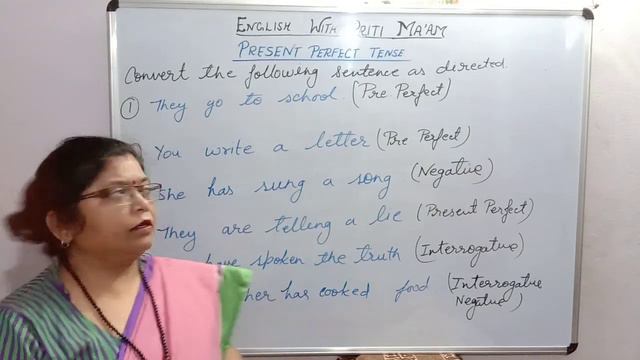 ENGLISH WITH PRITI MA'AM
PRESENT PERFECT TENSE
Convert the following sentence as directed.
① They go to school. (Pre Perfect)
You write a letter (Pre Perfect)
She has sung a song (Negative)
They are telling a lie (Present Perfect)
have spoken the truth (Interrogative)
has cooked food (Interrogative
Negative)